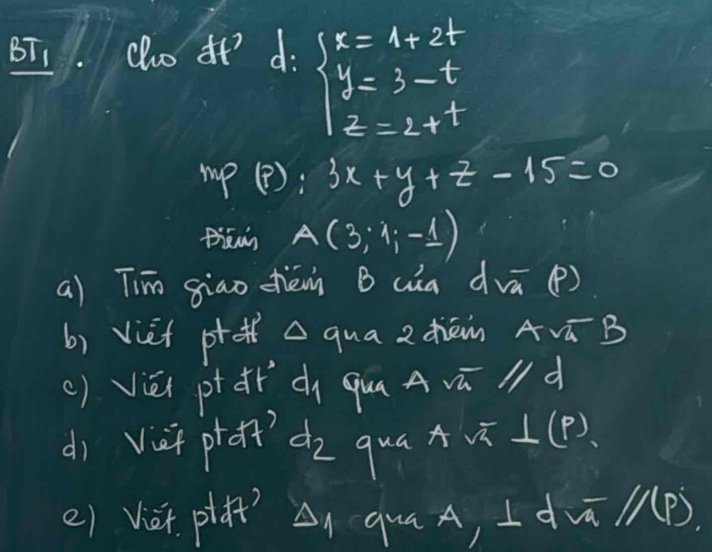 BT1. Cho đt' d: { x = 1 + 2t
y = 3 - t
z = 2 + t
mp (P): 3x + y + z - 15 = 0
Điểm A(3; 1; -1)
a) Tìm giao điểm B của d và (P).
b) Viết pt đt' Δ qua 2 điểm A và B
c) Viết pt đt' d1 qua A và // d
d) Viết pt đt' d2 qua A và ⊥ (P).
e) Viết. pt đt' Δ1 qua A, ⊥ d và // (P).